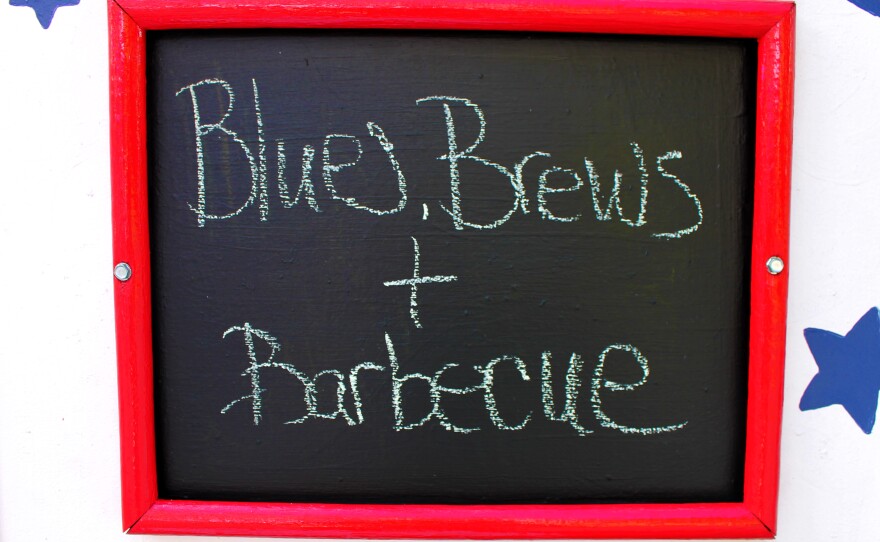 Blues, Brews
+
Barbecue